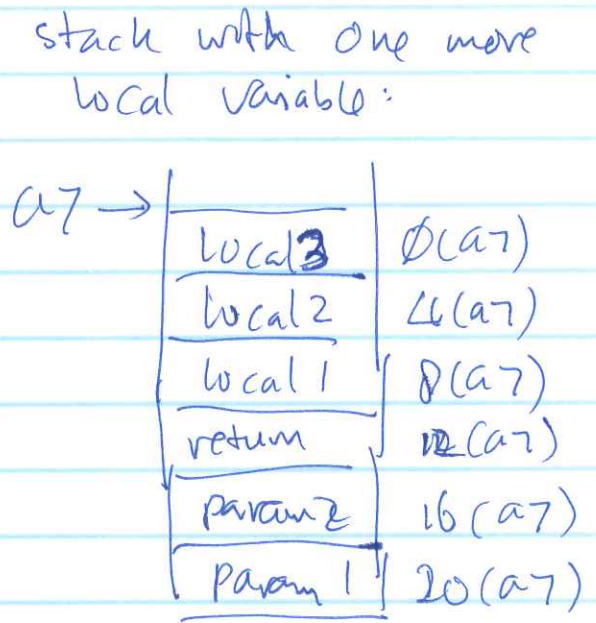 stack with one more
local variable:
a7 →
local3 0(a7)
local2 4(a7)
local1 8(a7)
return 12(a7)
param2 16(a7)
param1 20(a7)